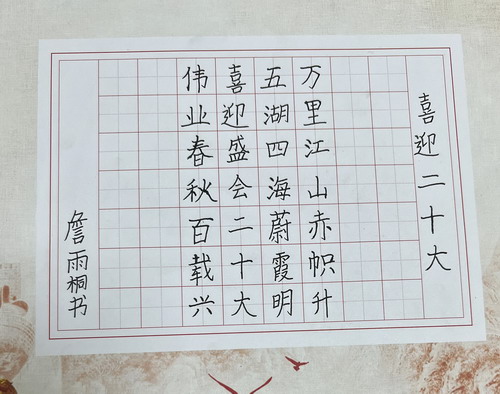 喜迎二十大
万里江山赤帜升
五湖四海蔚霞明
喜迎盛会二十大
伟业春秋百载兴
詹雨桐书